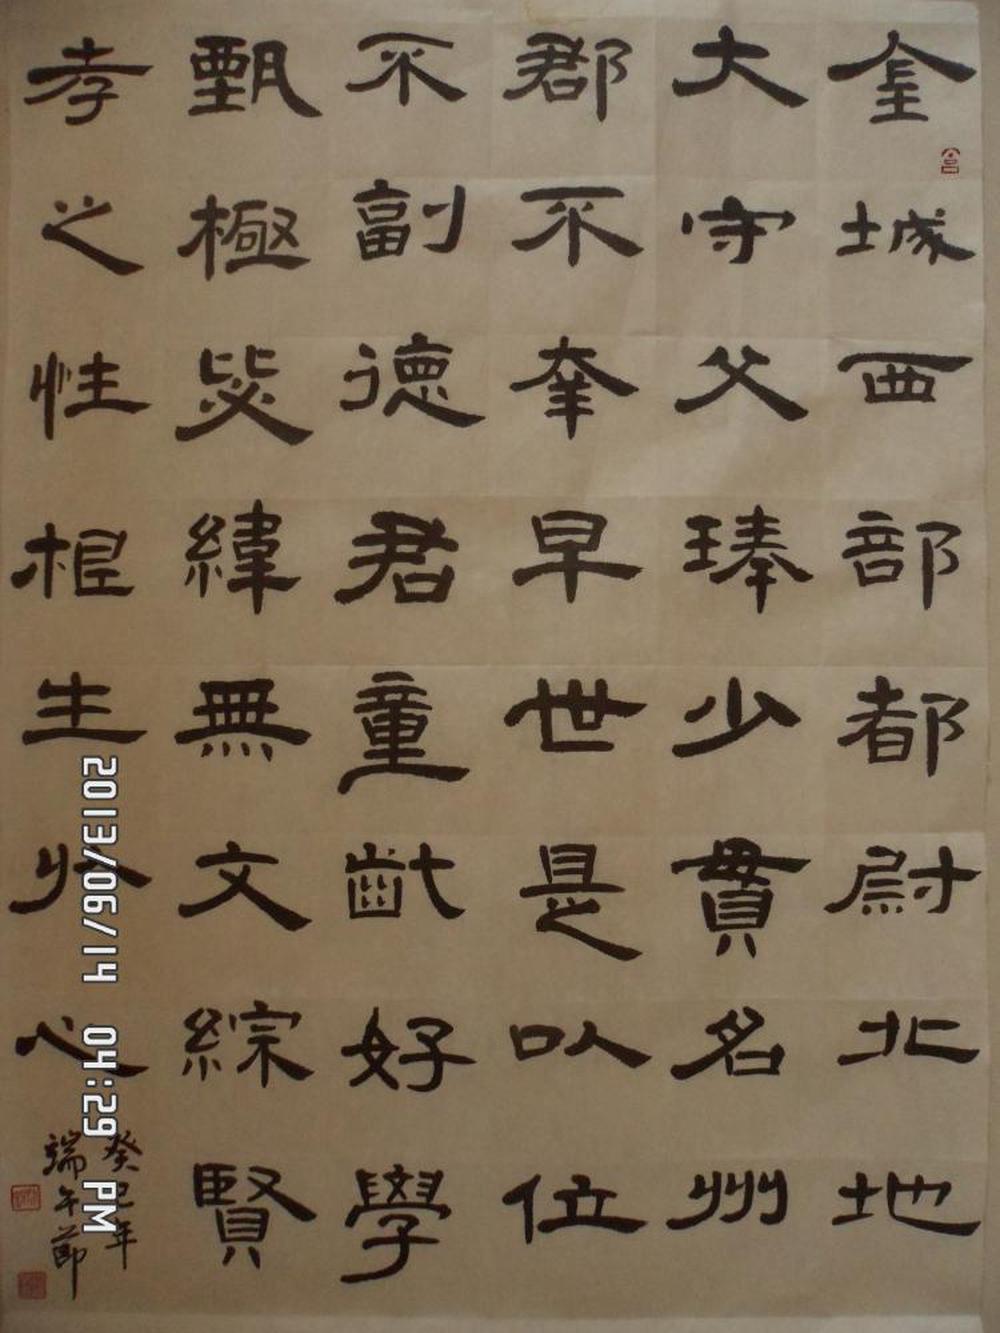 金城西部都尉北地
大守父琫少貫名州
郡不幸早世是以位
不副德君童齔好學
甄極毖緯無文綜賢
孝之性根生於心
癸巳年
端午節
2013/06/14 04:29 PM